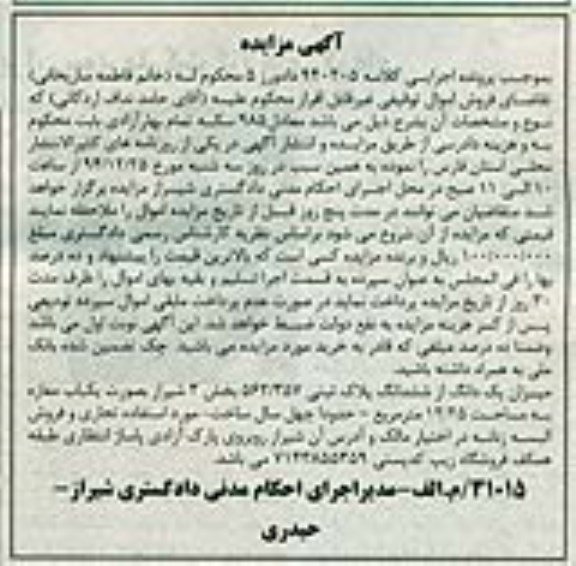 آگهی مزایده
بموجب پرونده اجرایی کلاسه ۹۴۰۲۰۵ دادورز ۵ محکوم له (خانم فاطمه
تقاضای فروش اموال توقیفی غیرقابل افراز محکوم علیه (آقای حامد نداف اردکانی) که
نوع و مشخصات آن بشرح ذیل می باشد معادل ۹۸۵ سکه تمام بهار آزادی بابت محکوم
به و هزینه دادرسی از طریق مزایده و انتشار آگهی در یکی از روزنامه های کثیرالانتشار
محلی استان فارس را نموده به همین سبب در روز سه شنبه مورخ ۹۴/۱۲/۲۵ از ساعت
۱۰ الی ۱۱ صبح در محل اجرای احکام مدنی دادگستری شیراز مزایده برگزار خواهد
شد متقاضیان می توانند در مدت پنج روز قبل از تاریخ مزایده اموال را ملاحظه نمایند
قیمتی که مزایده از آن شروع می شود براساس نظریه کارشناس رسمی دادگستری مبلغ
۱۰۰/۰۰۰/۰۰۰ ریال و برنده مزایده کسی است که بالاترین قیمت را پیشنهاد و ده درصد
بها را فی المجلس به عنوان سپرده به قسمت اجرا تسلیم و بقیه بهای اموال را ظرف مدت
۳۰ روز از تاریخ مزایده پرداخت نماید در صورت عدم پرداخت مابقی اموال سپرده تودیعی
پس از کسر هزینه مزایده به نفع دولت ضبط خواهد شد. این آگهی نوبت اول می باشد
وضمنا ده درصد مبلغی که قادر به خرید مورد مزایده می باشید. چک تضمین شده بانک
ملی به همراه داشته باشید.
میزان یک دانگ از ششدانگ پلاک ثبتی ۵۶۲/۳۵۷ بخش ۳ شیراز بصورت یکباب مغازه
به مساحت ۱۲/۶۵ مترمربع - حدودا چهل سال ساخت- مورد استفاده تجاری و فروش
البسه زنانه در اختیار مالک و آدرس آن شیراز روبروی پارک آزادی پاساژ انتظاری طبقه
همکف فروشگاه زیپ کدپستی ۷۱۴۳۸۵۵۳۵۹ می باشد.
۳۱۰۱۵/م.الف-مدیراجرای احکام مدنی دادگستری شیراز-
حیدری